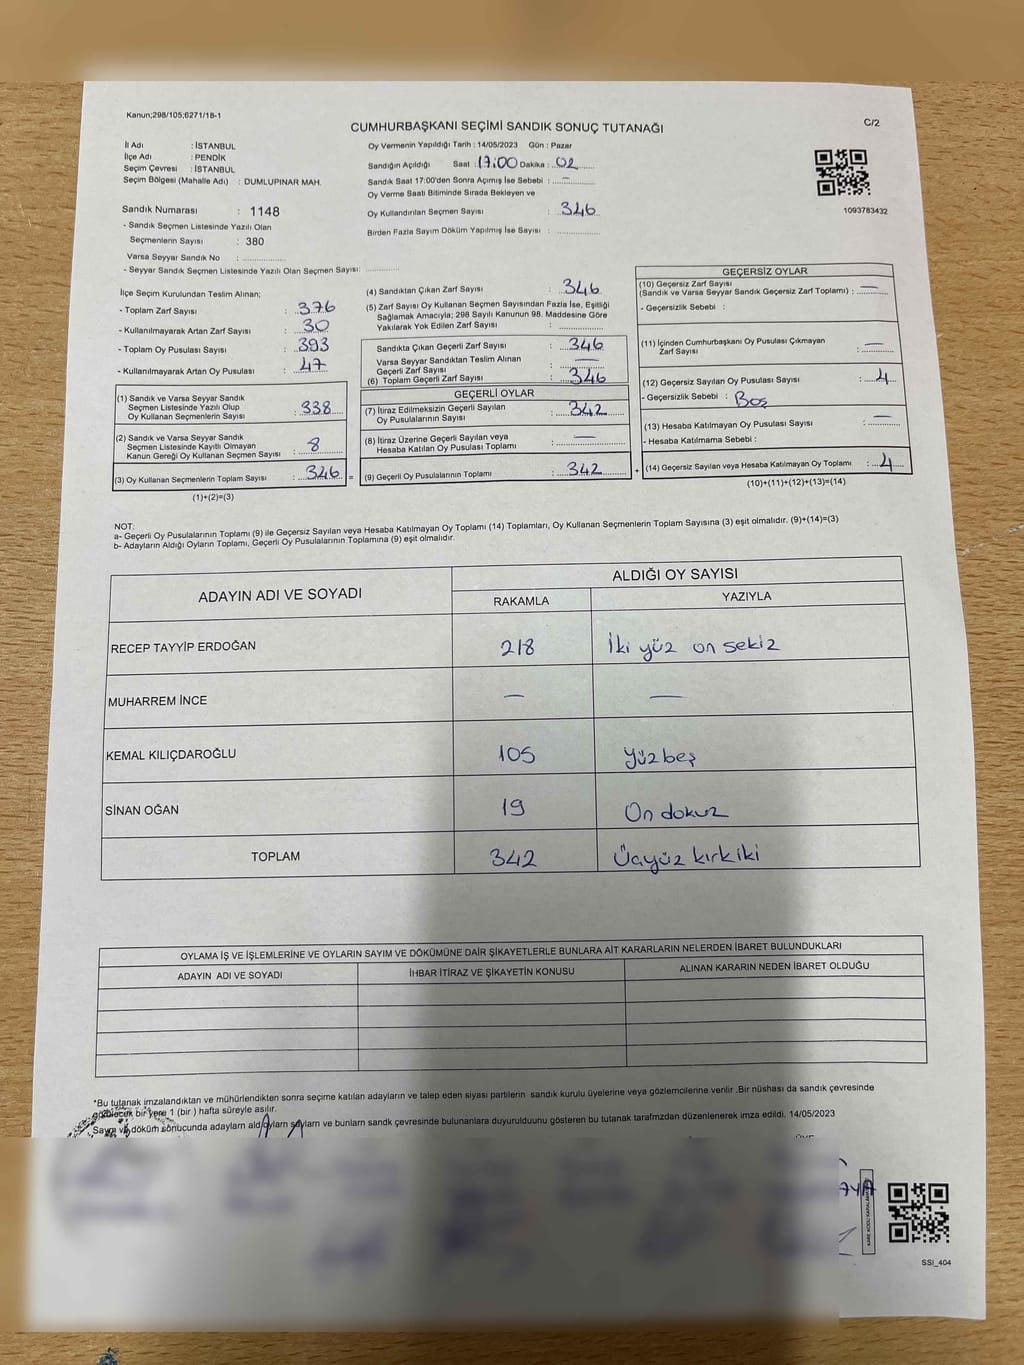 Kanun;298/105;6271/18-1
CUMHURBAŞKANI SEÇİMİ SANDIK SONUÇ TUTANAĞI
C/2
İl Adı : İSTANBUL
İlçe Adı : PENDİK
Seçim Çevresi : İSTANBUL
Seçim Bölgesi (Mahalle Adı) : DUMLUPINAR MAH.
Sandık Numarası : 1148
- Sandık Seçmen Listesinde Yazılı Olan
Seçmenlerin Sayısı : 380
Varsa Seyyar Sandık No :
- Seyyar Sandık Seçmen Listesinde Yazılı Olan Seçmen Sayısı:
Oy Vermenin Yapıldığı Tarih : 14/05/2023 Gün : Pazar
Sandığın Açıldığı Saat : 17:00 Dakika : 02
Sandık Saat 17:00'den Sonra Açımış İse Sebebi : —
Oy Verme Saati Bitiminde Sırada Bekleyen ve
Oy Kullandırılan Seçmen Sayısı : 346
Birden Fazla Sayım Döküm Yapılmış İse Sayısı :
1093783432
İlçe Seçim Kurulundan Teslim Alınan;
- Toplam Zarf Sayısı : 376
- Kullanılmayarak Artan Zarf Sayısı : 30
- Toplam Oy Pusulası Sayısı : 393
- Kullanılmayarak Artan Oy Pusulası : 47
(1) Sandık ve Varsa Seyyar Sandık
Seçmen Listesinde Yazılı Olup
Oy Kullanan Seçmenlerin Sayısı : 338
(2) Sandık ve Varsa Seyyar Sandık
Seçmen Listesinde Kayıtlı Olmayan
Kanun Gereği Oy Kullanan Seçmen Sayısı : 8
(3) Oy Kullanan Seçmenlerin Toplam Sayısı : 346 =
(1)+(2)=(3)
(4) Sandıktan Çıkan Zarf Sayısı : 346
(5) Zarf Sayısı Oy Kullanan Seçmen Sayısından Fazla İse, Eşitliği
Sağlamak Amacıyla; 298 Sayılı Kanunun 98. Maddesine Göre
Yakılarak Yok Edilen Zarf Sayısı :
Sandıkta Çıkan Geçerli Zarf Sayısı : 346
Varsa Seyyar Sandıktan Teslim Alınan
Geçerli Zarf Sayısı : —
(6) Toplam Geçerli Zarf Sayısı : 346
GEÇERLİ OYLAR
(7) İtiraz Edilmeksizin Geçerli Sayılan
Oy Pusulalarının Sayısı : 342
(8) İtiraz Üzerine Geçerli Sayılan veya
Hesaba Katılan Oy Pusulası Toplamı : —
(9) Geçerli Oy Pusulalarının Toplamı : 342 +
GEÇERSİZ OYLAR
(10) Geçersiz Zarf Sayısı
(Sandık ve Varsa Seyyar Sandık Geçersiz Zarf Toplamı) : —
- Geçersizlik Sebebi :
(11) İçinden Cumhurbaşkanı Oy Pusulası Çıkmayan
Zarf Sayısı : —
(12) Geçersiz Sayılan Oy Pusulası Sayısı : 4
- Geçersizlik Sebebi : Boş
(13) Hesaba Katılmayan Oy Pusulası Sayısı : —
- Hesaba Katılmama Sebebi :
(14) Geçersiz Sayılan veya Hesaba Katılmayan Oy Toplamı : 4
(10)+(11)+(12)+(13)=(14)
NOT:
a- Geçerli Oy Pusulalarının Toplamı (9) ile Geçersiz Sayılan veya Hesaba Katılmayan Oy Toplamı (14) Toplamları, Oy Kullanan Seçmenlerin Toplam Sayısına (3) eşit olmalıdır. (9)+(14)=(3)
b- Adayların Aldığı Oyların Toplamı, Geçerli Oy Pusulalarının Toplamına (9) eşit olmalıdır.
ADAYIN ADI VE SOYADI
ALDIĞI OY SAYISI
RAKAMLA YAZIYLA
RECEP TAYYİP ERDOĞAN 218 İki yüz on sekiz
MUHARREM İNCE — —
KEMAL KILIÇDAROĞLU 105 Yüzbeş
SİNAN OĞAN 19 On dokuz
TOPLAM 342 Üçyüz kırkiki
OYLAMA İŞ VE İŞLEMLERİNE VE OYLARIN SAYIM VE DÖKÜMÜNE DAİR ŞİKAYETLERLE BUNLARA AİT KARARLARIN NELERDEN İBARET BULUNDUKLARI
ADAYIN ADI VE SOYADI İHBAR İTİRAZ VE ŞİKAYETİN KONUSU ALINAN KARARIN NEDEN İBARET OLDUĞU
*Bu tutanak imzalandıktan ve mühürlendikten sonra seçime katılan adayların ve talep eden siyasi partilerin sandık kurulu üyelerine veya gözlemcilerine verilir .Bir nüshası da sandık çevresinde
görülecek bir yere 1 (bir ) hafta süreyle asılır.
Sayım ve döküm sonucunda adayların aldıkları oyların sayıların ve bunların sandık çevresinde bulunanlara duyurulduunu gösteren bu tutanak tarafımızdan düzenlenerek imza edildi. 14/05/2023
SSI_404